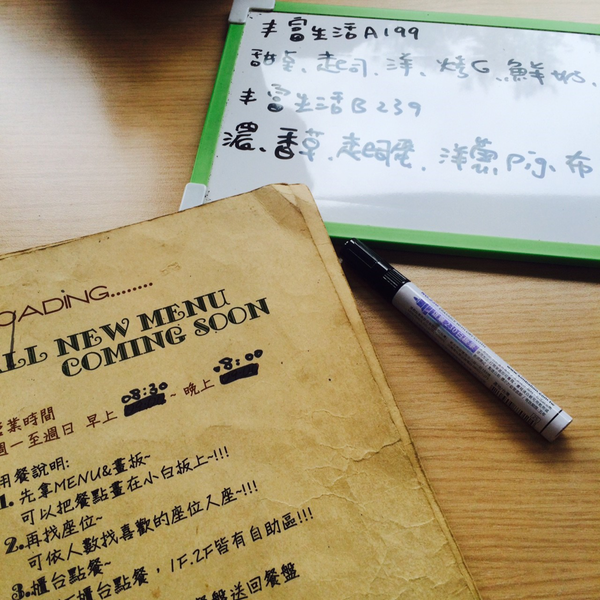 丰富生活A199
甜堡、起司、洋、烤G、鮮奶、
丰富生活B239
濃、香草、起司蛋、洋蔥、Pig、布
OADING........
ALL NEW MENU
COMING SOON
營業時間
週一至週日 早上 08:30 ~ 晚上 08:00
用餐說明:
1. 先拿MENU&畫板~
可以把餐點畫在小白板上~!!!
2.再找座位~
可依人數找喜歡的座位入座~!!!
3.櫃台點餐~
櫃台點餐，1F.2F皆有自助區!!!
餐送回餐盤